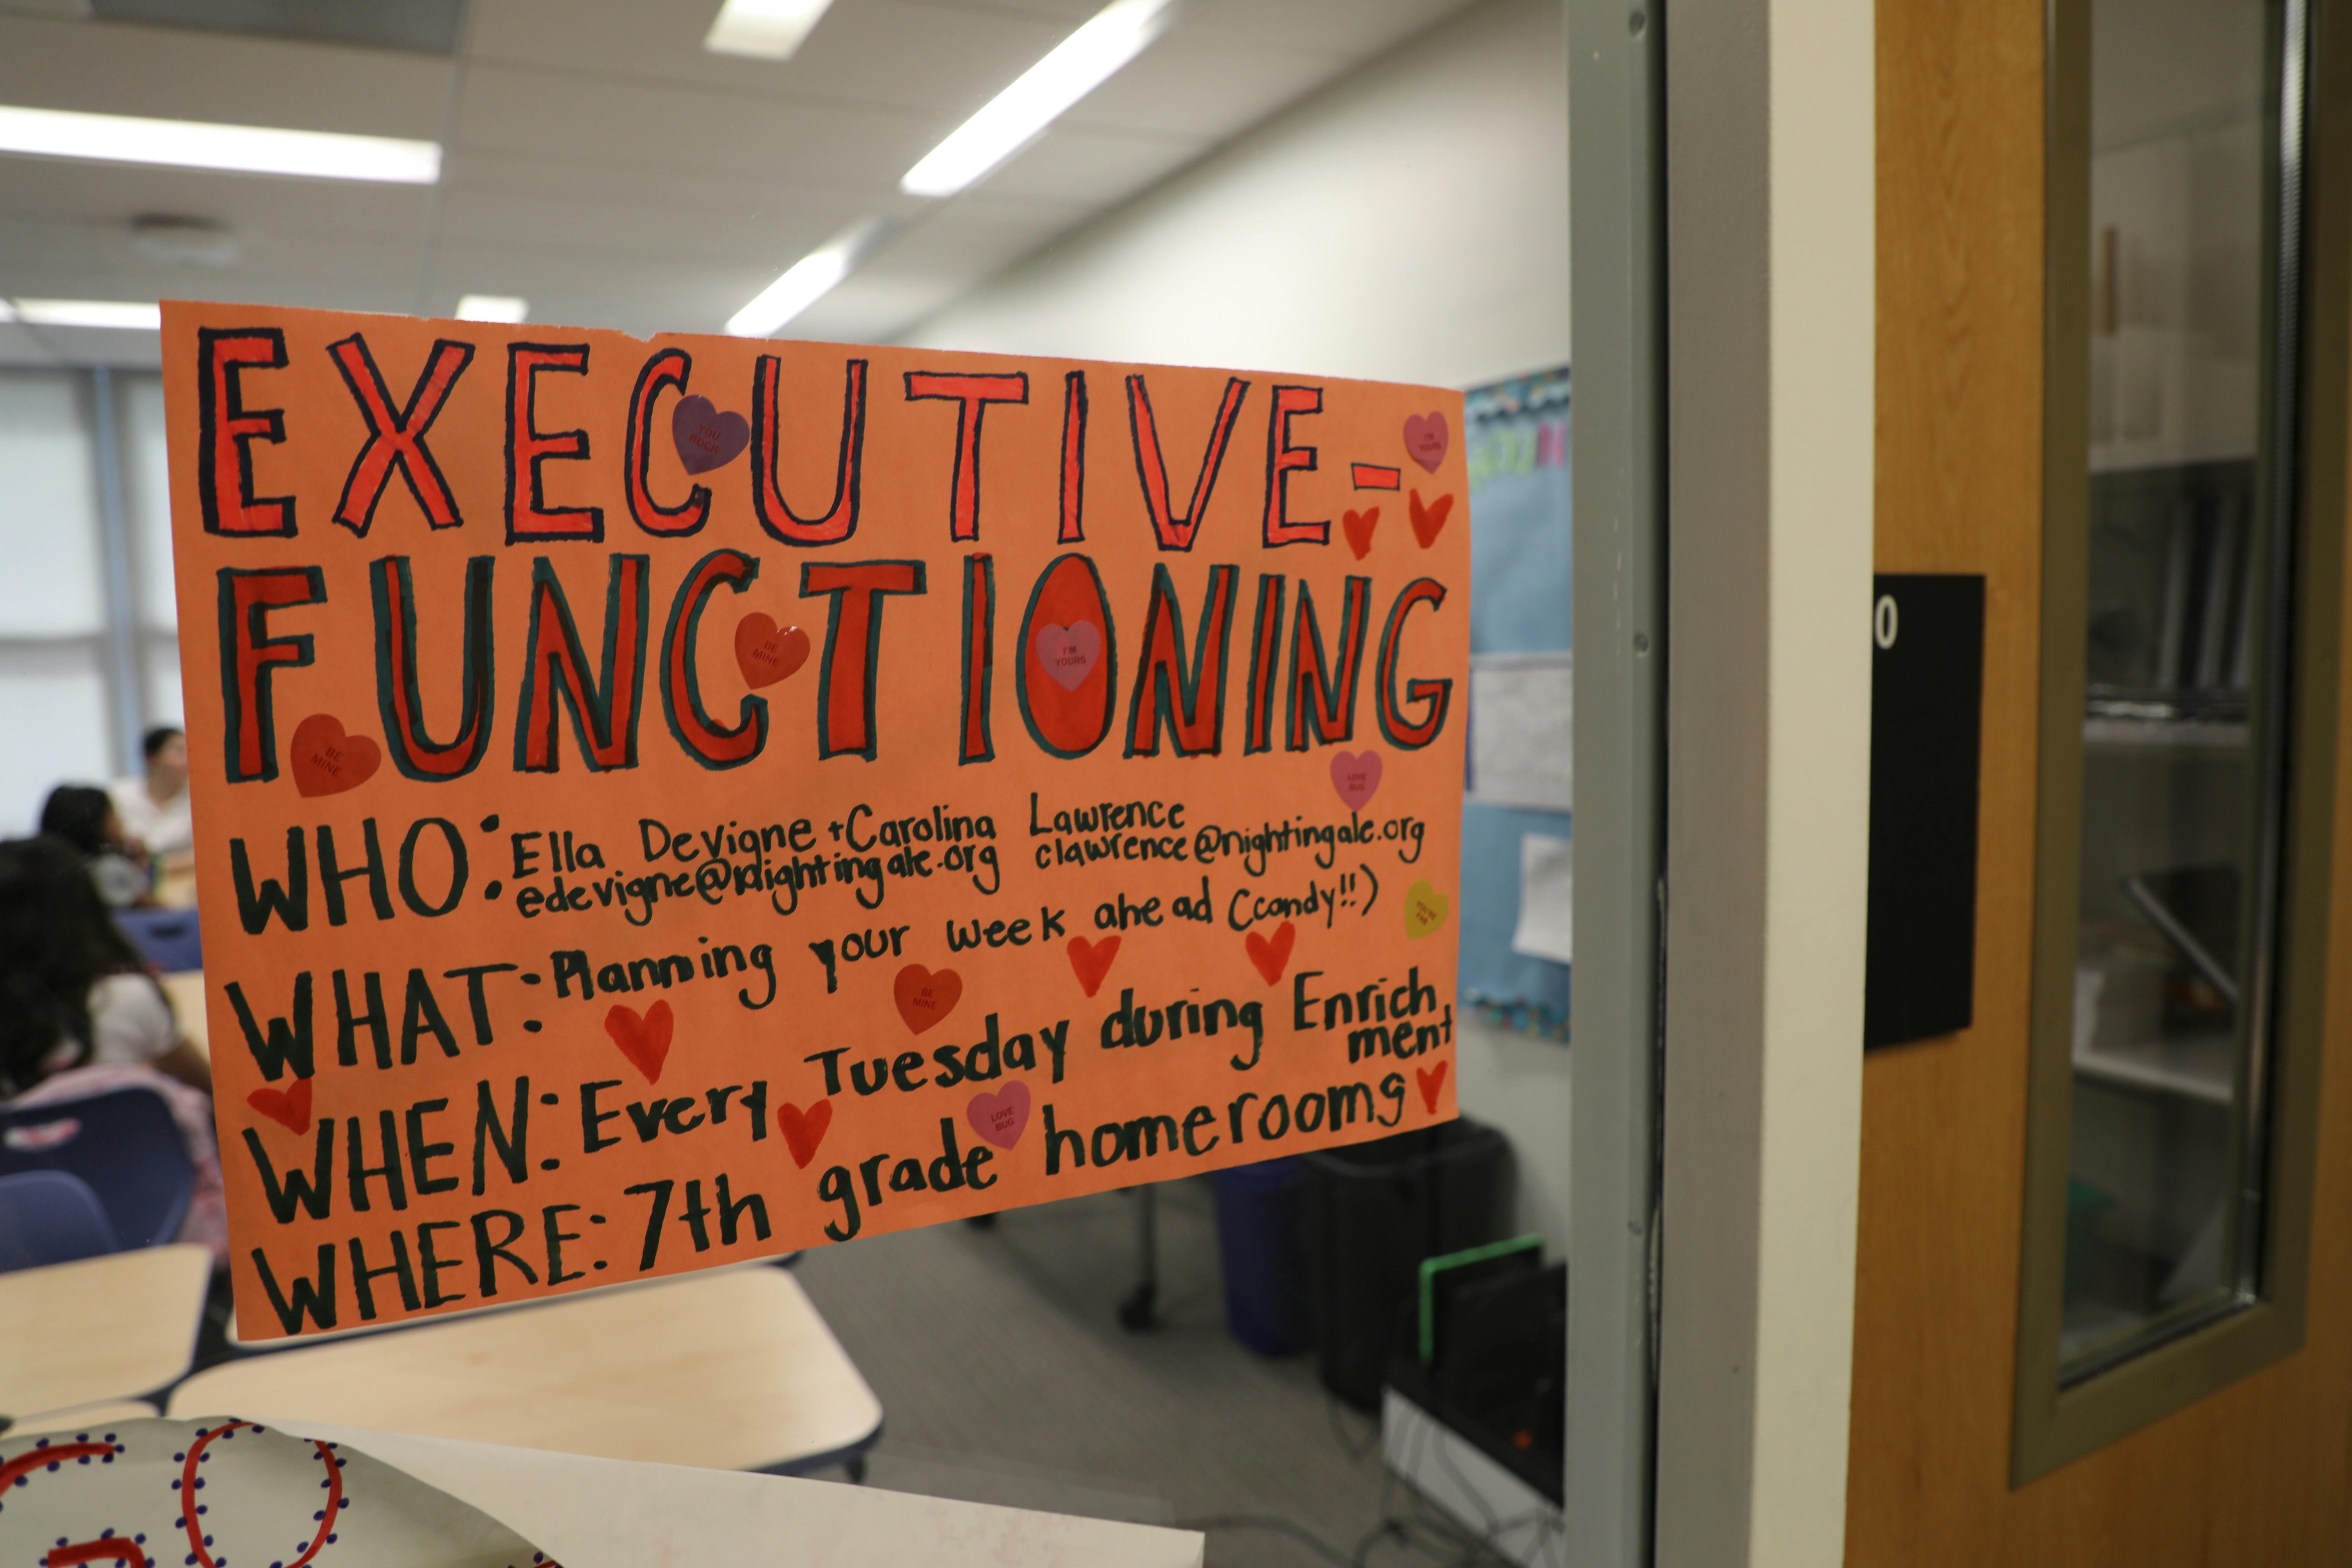 EXECUTIVE-
FUNCTIONING
WHO: Ella Devigne + Carolina Lawrence
edevigne@nightingale.org clawrence@nightingale.org
WHAT: Planning your week ahead (candy!!)
WHEN: Every Tuesday during Enrich
ment
WHERE: 7th grade homerooms
YOU
ROCK
I'M
YOURS
BE
MINE
I'M
YOURS
BE
MINE
LOVE
BUG
BE
MINE
LOVE
BUG
0